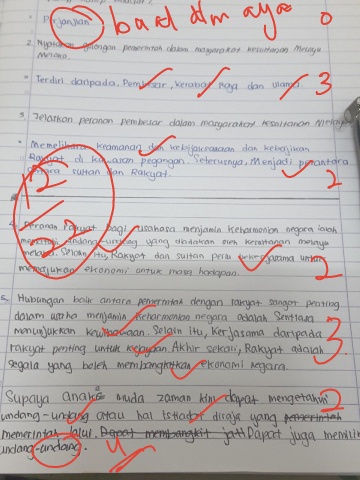 Perjanjian buat dlm ayat 0
2. Nyatakan golongan pemerintah dalam masyarakat kesultanan Melayu
Melaka.
Terdiri daripada, Pembesar, Kerabat Raja dan ulama. 3
3. Jelaskan peranan pembesar dalam masyarakat kesultanan Melayu
Memelihara keamanan dan kebijaksanaan dan kebajikan
Rakyat di kawasan pegangan. Seterusnya, Menjadi perantara
antara sultan dan Rakyat. 2
12
4. Peranan rakyat bagi usahasa menjamin keharmonian negara ialah
undang-undang yang diadakan oleh kerattanan melayu
melaka. Selain itu, Rakyat dan sultan perlu bekerjasama untuk
memajukan ekonomi untuk masa hadapan. 2
5. Hubungan baik antara pemerintah dengan rakyat sangat penting
dalam usaha menjamin keharmonian negara adalah Sentiasa
menunjukkan kewibawaan. Selain itu, Kerjasama daripada 3
rakyat penting untuk kejayaan. Akhir sekali, Rakyat adalah
segala yang boleh membangkitkan ekonomi negara.
Supaya anak muda zaman kini dapat mengetahui 2
undang-undang atau hal istiadat diraja yang pemerintah
memerintah lalu. Dapat membangkit jati Dapat juga memilih
undang-undang. 4